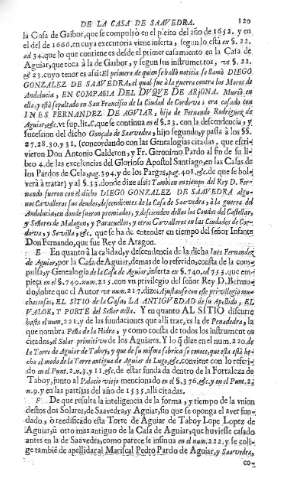 DE LA CASA DE SAAVEDRA. 120
la Casa de Gasbor, que se compulsò en el pleito del año de 1652. y en
el del de 1660. en cuya executoria viene inserta, segun lo està en §. 22.
ad 34. que lo que contiene es desde el primer casamiento en la Casa de
Aguiar, que toca à la de Gasbor, y segun los instrumentos, no §. 22.
23. cuyo tenor es assi: El primero de quien se halla noticia se llamò DIEGO
GONZALEZ DE SAAVEDRA, el qual fue à la guerra contra los Moros de
Andalucia, EN COMPAÑIA DEL DVQUE DE ARJONA. Murió en
ella, y està sepultado en San Francisco de la Ciudad de Cordova: era casado con
INES FERNANDEZ DE AGVIAR, hija de Fernando Rodriguez de
Aguiar, &c. Lo que se continua en el §. 23. con la descendencia, y
sucession del dicho Gonçalo de Saavedra, hijo segundo, y passa à los §§.
27. 28. 30. y 31. (concordando con las Genealogias citadas, que escri-
vieron Don Antonio Calderon, y Fr. Geronimo Pardo al fin de su li-
bro 4. de las excelencias del Glorioso Apostol Santiago, en las Casas de
los Pardos de Cela, pag. 394. y de los Pargas, pag. 401. &c. de que se bol-
verà à tratar) y al §. 13. donde dize assi: Tambien en tiempo del Rey D. Fer-
nando fueron con el dicho DIEGO GONZALEZ DE SAAVEDRA algu-
nos Cavalleros sus deudos, descendientes de la Casa de Saavedra, à la guerra del
Andalucia, en donde fueron premiados, y descienden dellos los Condes del Castellar,
y Señores de Malagon, y Paracuellos, y otros Cavalleros en las Ciudades de Cor-
dova, y Sevilla, &c. que se ha de entender en tiempo del señor Infante
Don Fernando, que fue Rey de Aragon.
E En quanto à la calidad, y descendencia de la dicha Ines Fernandez
de Aguiar, por la Casa de Aguiar, demàs de lo referido, consta de la com-
pulsa, y Genealogia de la Casa de Aguiar, inserta en §. 740. ad 753. que em-
pieça en el §. 740. num. 215. con un privilegio del señor Rey D. Bermu-
do, sobre que el Autor en num. 217.
EL SITIO de la Casa: LA ANTIGVEDAD de su Apellido, EL
VALOR, Y PORTE del Señor della. Y en quanto AL SITIO discurre
hasta el num. 221. y de las fundaciones que allà trae, es la de
que nombra Peito de la Hedra, y como consta de todos los instrumentos
citados, el Solar primitivo de los Aguiares. Y lo que dize en el num. 220. de
la Torre de Aguiar de Taboy, y que de su misma fabrica se conoce, que esta he-
cha al modo de la Torre antigua de Aguiar de Lugo, &c. conviene con lo referi-
do en el Punt. 2. n. 9. y 11. &c. de estar funda dentro de la Fortaleza de
Taboy, junto al Palacio viejo mencionado en el §. 376. &c. y en el Punt. 2.
n. 9. y en las partijas del año de 1535. allà citadas.
F De que resulta la inteligencia de la forma, y tiempo de la union
destos dos Solares, de Saavedra, y Aguiar, sin que se oponga el aver fun-
dado, ò reedificado esta Torre de Aguiar de Taboy Lope Lopez de
Aguiar, ù otro mas antiguo de la Casa de Aguiar, que huviesse casado
antes en la de Saavedra, como parece se insinua en el num. 222. y se coli-
ge tambien de apellidar al Mariscal Pedro Pardo de Aguiar, y Saavedra,
co-